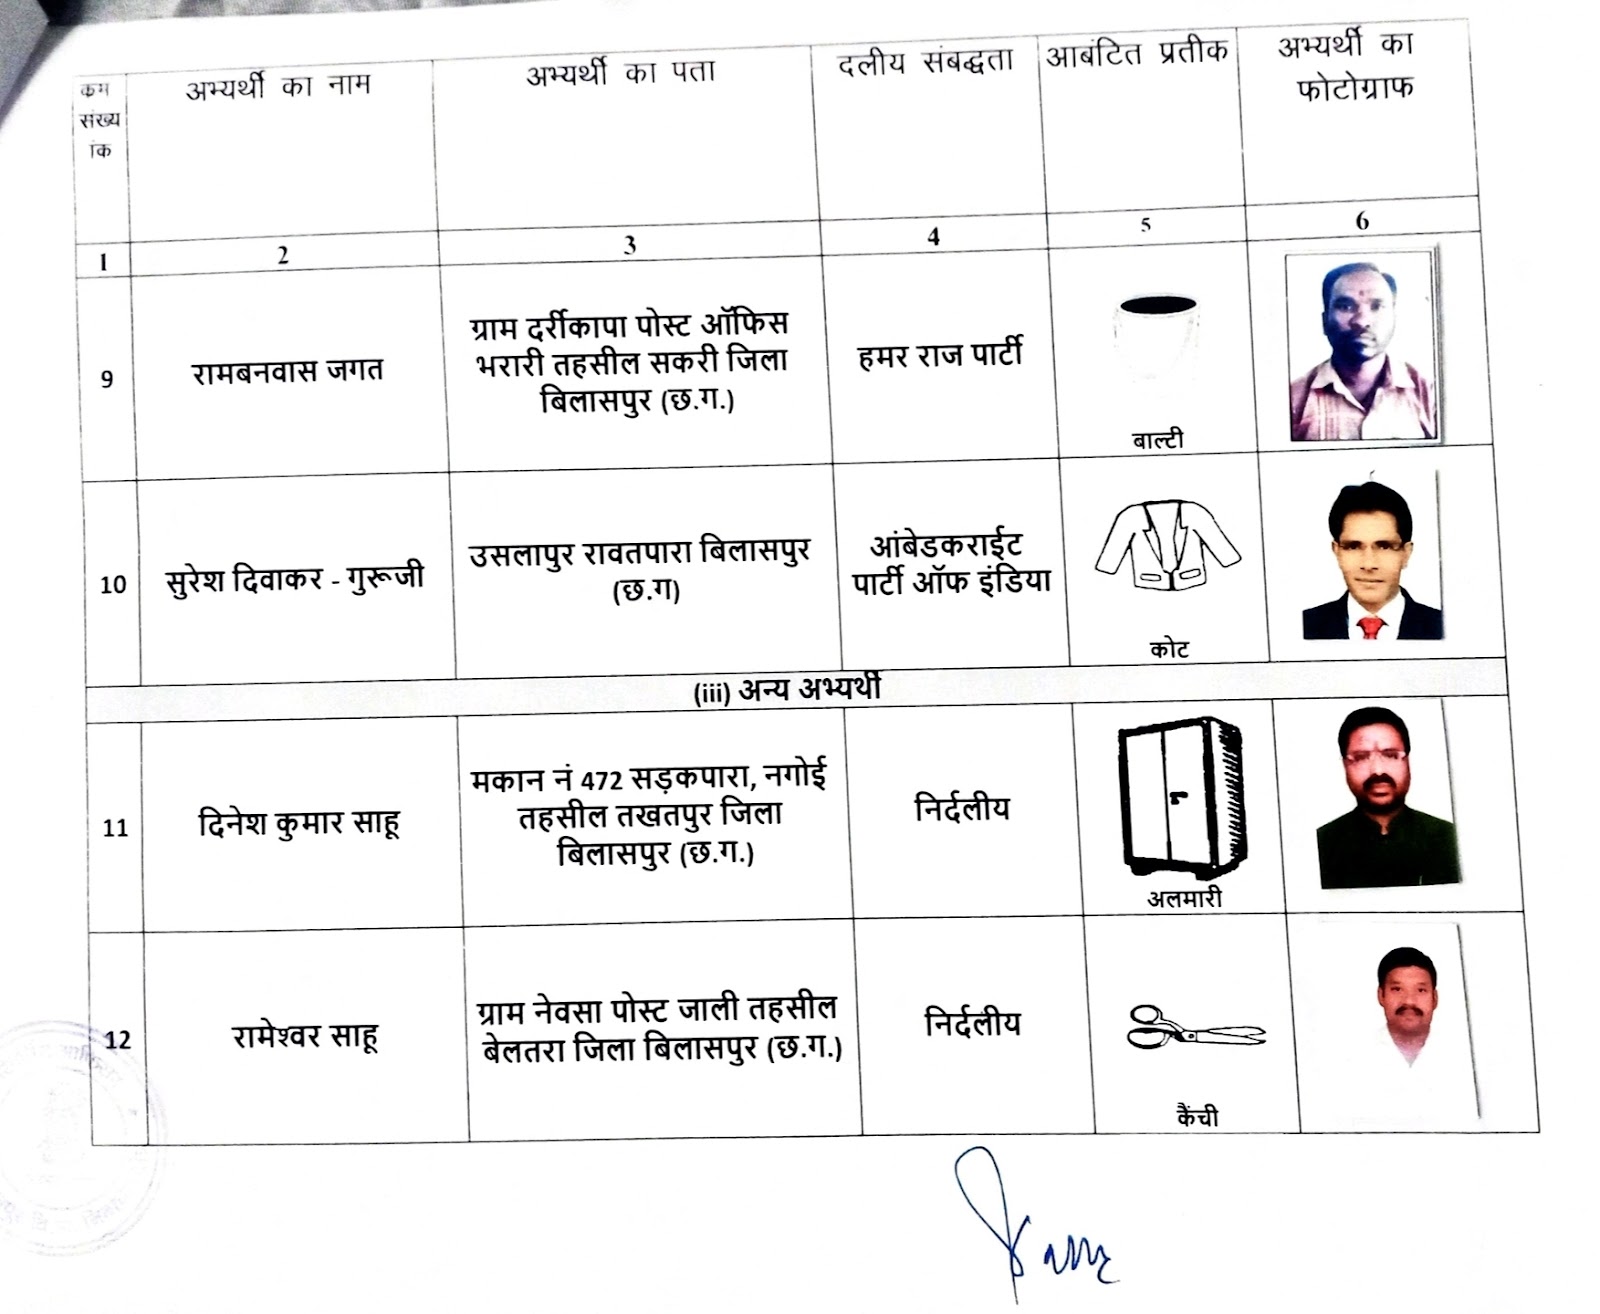 क्रम
संख्य
ांक
अभ्यर्थी का नाम
अभ्यर्थी का पता
दलीय संबद्धता
आबंटित प्रतीक
अभ्यर्थी का
फोटोग्राफ
1
2
3
4
5
6
9
रामबनवास जगत
ग्राम दर्रीकापा पोस्ट ऑफिस
भरारी तहसील सकरी जिला
बिलासपुर (छ.ग.)
हमर राज पार्टी
बाल्टी
10
सुरेश दिवाकर - गुरूजी
उसलापुर रावतपारा बिलासपुर
(छ.ग)
आंबेडकराईट
पार्टी ऑफ इंडिया
कोट
(iii) अन्य अभ्यर्थी
11
दिनेश कुमार साहू
मकान नं 472 सड़कपारा, नगोई
तहसील तखतपुर जिला
बिलासपुर (छ.ग.)
निर्दलीय
अलमारी
12
रामेश्वर साहू
ग्राम नेवसा पोस्ट जाली तहसील
बेलतरा जिला बिलासपुर (छ.ग.)
निर्दलीय
कैंची